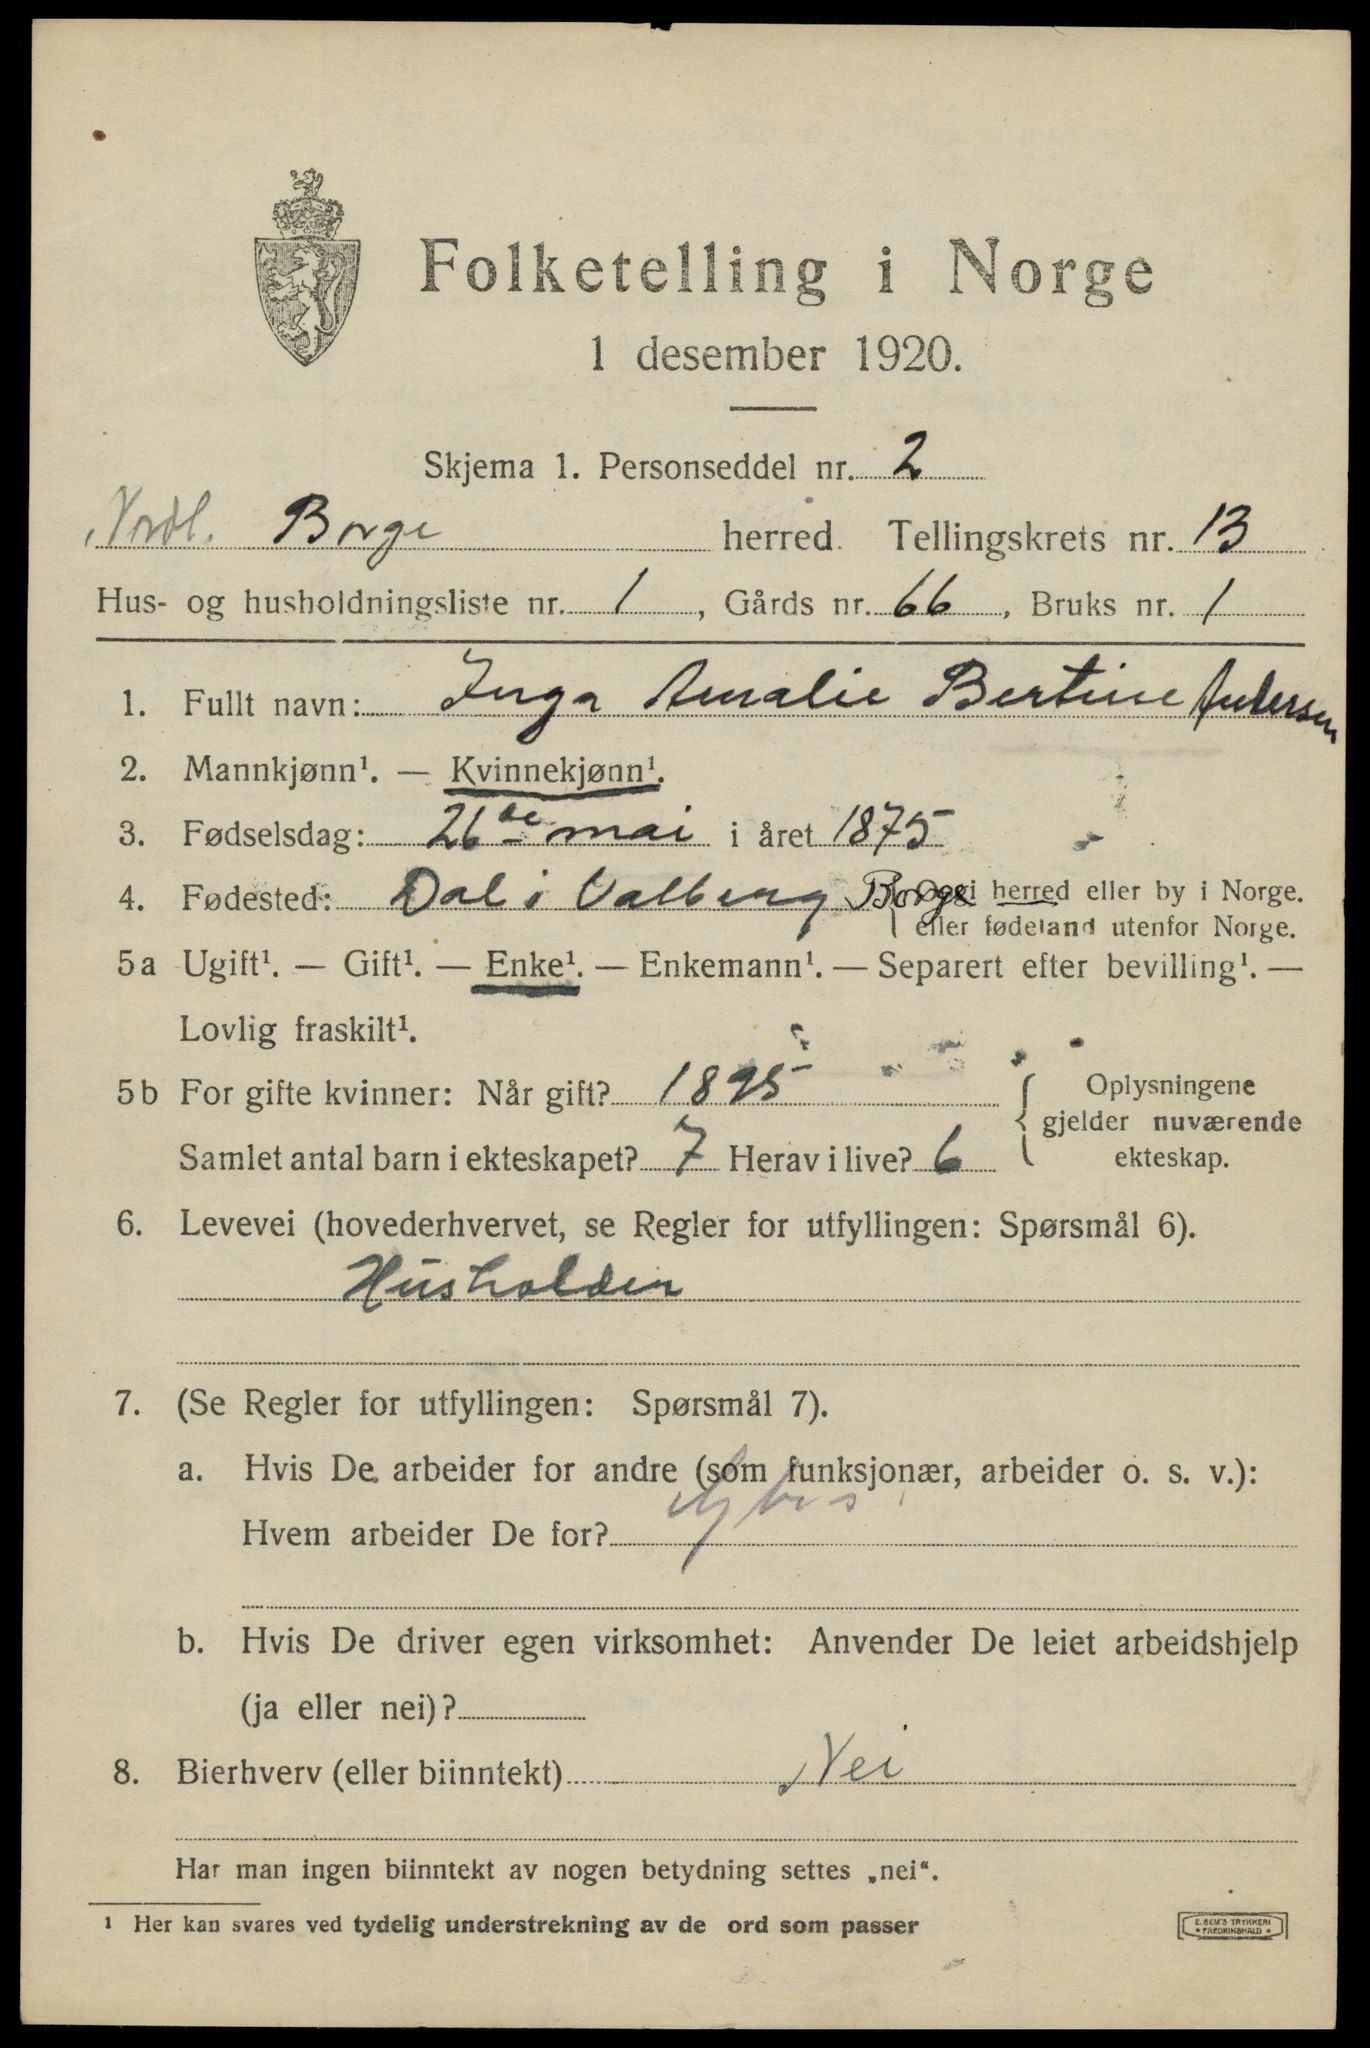 Folketelling i Norge
1 desember 1920.
Skjema 1. Personseddel nr. 2
Nordl. Borge herred. Tellingskrets nr. 13
Hus- og husholdningsliste nr. 1, Gårds nr. 66, Bruks nr. 1
1. Fullt navn: Inga Amalie Bertine Andersen
2. Mannkjønn¹. — Kvinnekjønn¹.
3. Fødselsdag: 26de mai i året 1875
4. Fødested: Dal i Valberg Borge { Opgi herred eller by i Norge.
eller fødeland utenfor Norge.
5a Ugift¹. — Gift¹. — Enke¹. — Enkemann¹. — Separert efter bevilling¹. —
Lovlig fraskilt¹.
5b For gifte kvinner: Når gift? 1895
Samlet antal barn i ekteskapet? 7 Herav i live? 6
{ Oplysningene
gjelder nuværende
ekteskap.
6. Levevei (hovederhvervet, se Regler for utfyllingen: Spørsmål 6).
Husholder
7. (Se Regler for utfyllingen: Spørsmål 7).
a. Hvis De arbeider for andre (som funksjonær, arbeider o. s. v.):
Hvem arbeider De for?
b. Hvis De driver egen virksomhet: Anvender De leiet arbeidshjelp
(ja eller nei)?
8. Bierhverv (eller biinntekt) Nei
Har man ingen biinntekt av nogen betydning settes „nei“.
¹ Her kan svares ved tydelig understrekning av de ord som passer
E. SEM'S TRYKKERI
• FREDRIKSHALD •